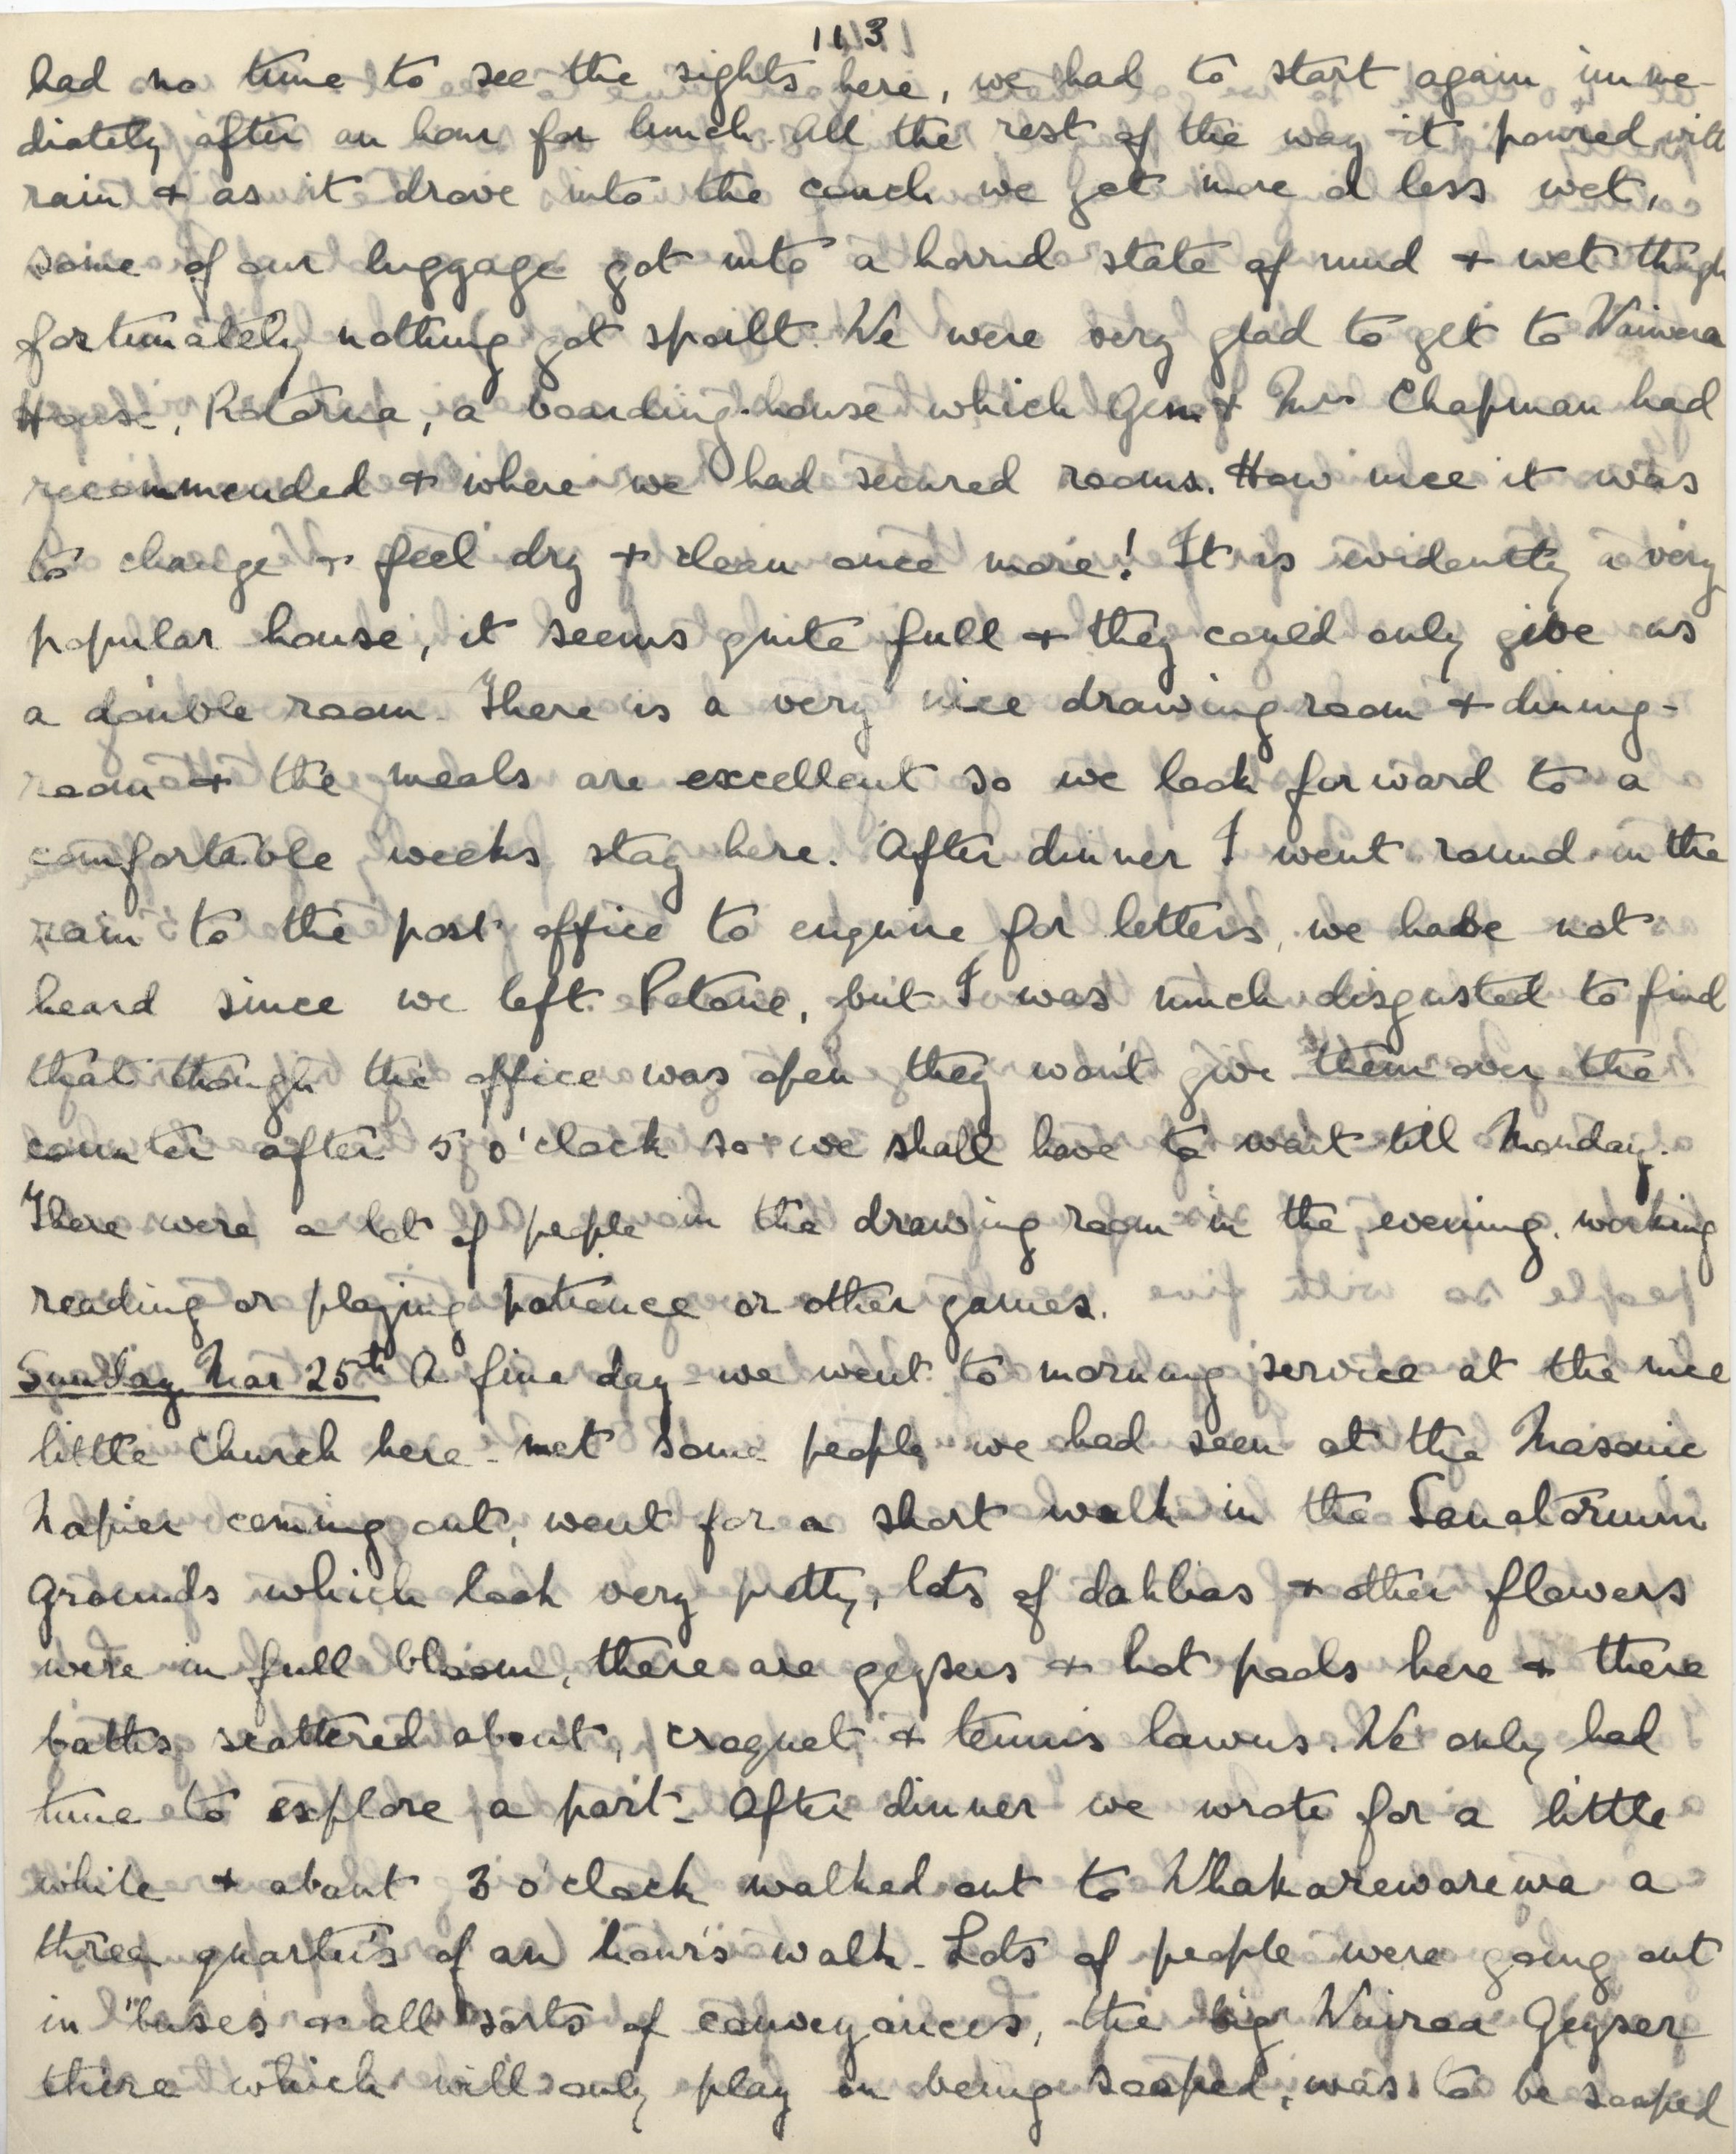 113
had no time to see the sights here, we had to start again imme-
diately after an hour for lunch. All the rest of the way it poured with
rain + as it drove into the coach we got more or less wet,
some of our luggage got into a horrid state of mud + wet though
fortunately nothing got spoilt. We were very glad to get to Waiwera
House, Rotorua, a boarding-house which Gem + Mrs Chapman had
recommended + where we had secured rooms. How nice it was
to change + feel dry + clean once more! It is evidently a very
popular house, it seems quite full + they could only give us
a double room. There is a very nice drawing room + dining-
room + the meals are excellent so we look forward to a
comfortable weeks stay here. After dinner I went round in the
rain to the post office to enquire for letters, we have not
heard since we left Petone, but I was much disgusted to find
that though the office was open they won't give them over the
counter after 5 o'clock so we shall have to wait till Monday.
There were a lot of people in the drawing room in the evening, working
reading or playing patience or other games.
Sunday Mar 25th A fine day - we went to morning service at the nice
little Church here - met some people we had seen at the Masonic
Napier coming out, went for a short walk in the Sanatorium
grounds which look very pretty, lots of dahlias + other flowers
were in full bloom, there are geysers + hot pools here + there
baths scattered about, croquet + tennis lawns. We only had
time to explore a part. After dinner we wrote for a little
while + about 3 o'clock walked out to Whakarewarewa a
three quarters of an hour's walk. Lots of people were going out
in 'buses + all sorts of conveyances, the big Wairoa Geyser
there which will only play on being soaped, was to be soaped